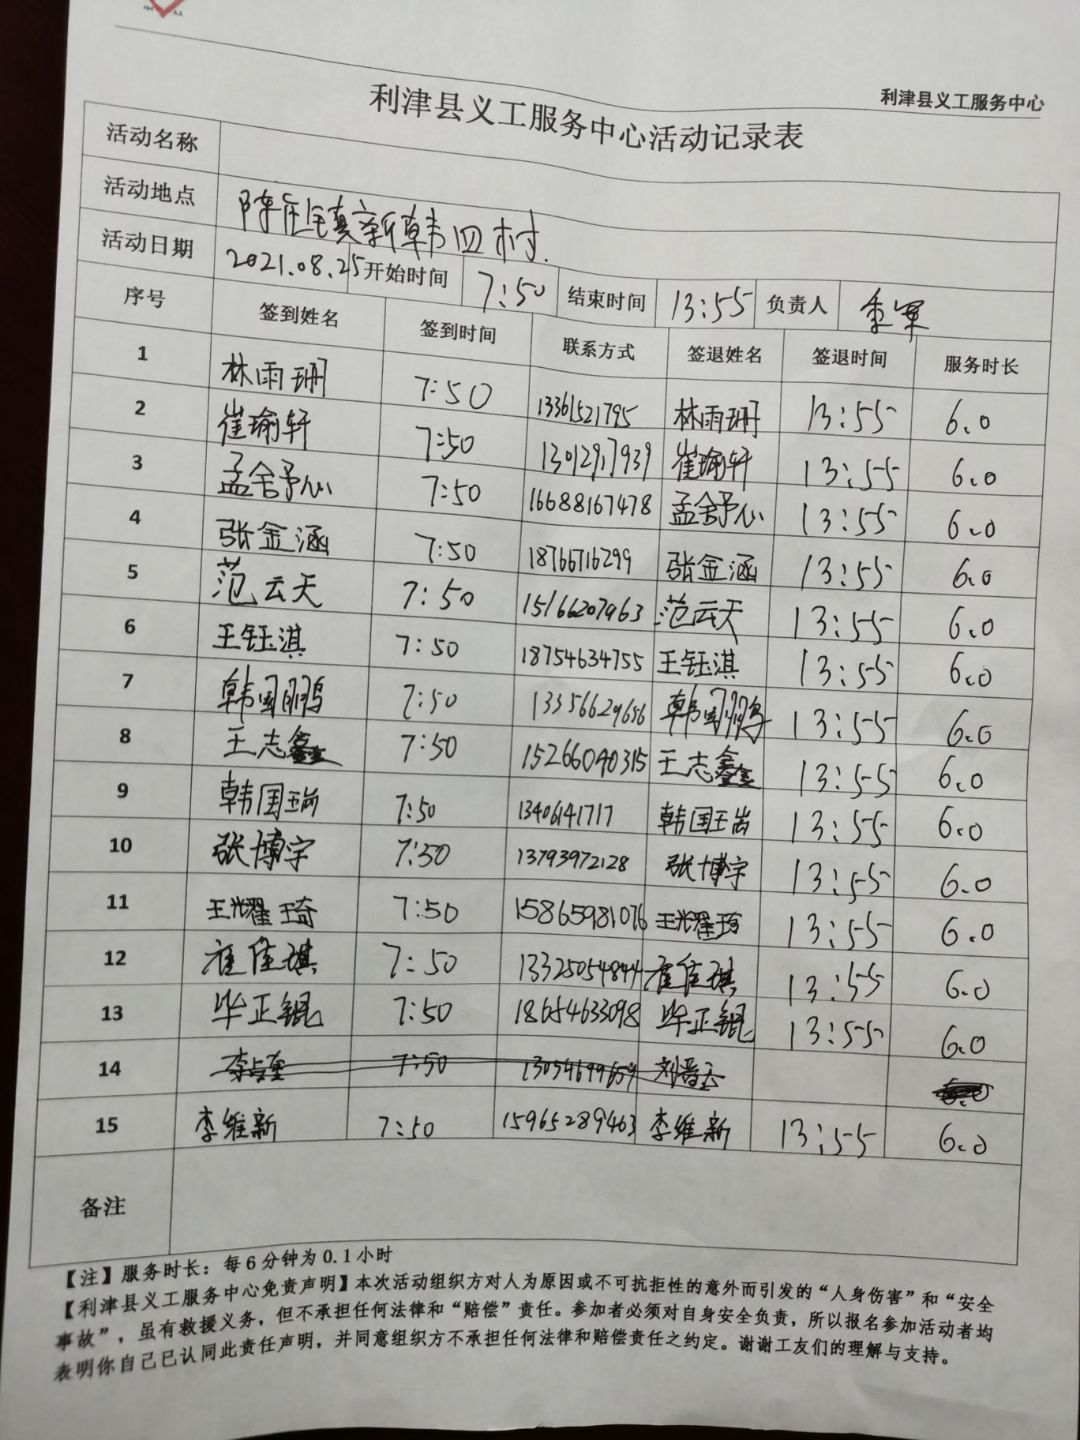 利津县义工服务中心
利津县义工服务中心活动记录表
活动名称
活动地点 陈庄镇真新韩四村.
活动日期 2021.08.25 开始时间 7:50 结束时间 13:55 负责人
序号 签到姓名 签到时间 联系方式 签退姓名 签退时间 服务时长
1 林雨珊 7:50 13361521795 林雨珊 13:55 6.0
2 崔瑜轩 7:50 13012917939 崔瑜轩 13:55 6.0
3 孟舍予心 7:50 16688167478 孟舍予心 13:55 6.0
4 张金涵 7:50 18766716299 张金涵 13:55 6.0
5 范云天 7:50 15166207963 范云天 13:55 6.0
6 王钰淇 7:50 18754634755 王钰淇 13:55 6.0
7 韩国鹏 7:50 13356629656 韩国鹏 13:55 6.0
8 王志鑫 7:50 15266040315 王志鑫 13:55 6.0
9 韩国瑞 7:50 13406141717 韩国瑞 13:55 6.0
10 张博宇 7:50 13793972128 张博宇 13:55 6.0
11 王耀琦 7:50 15865981076 王耀琦 13:55 6.0
12 崔佳琪 7:50 13325054844 崔佳琪 13:55 6.0
13 毕正锟 7:50 18654633098 毕正锟 13:55 6.0
14 7:50 13054699659 6.0
15 李维新 7:50 15965289463 李维新 13:55 6.0
备注
【注】服务时长：每6分钟为0.1小时
【利津县义工服务中心免责声明】本次活动组织方对人为原因或不可抗拒性的意外而引发的“人身伤害”和“安全
事故”，虽有救援义务，但不承担任何法律和“赔偿”责任。参加者必须对自身安全负责，所以报名参加活动者均
表明你自己已认同此责任声明，并同意组织方不承担任何法律和赔偿责任之约定。谢谢工友们的理解与支持。